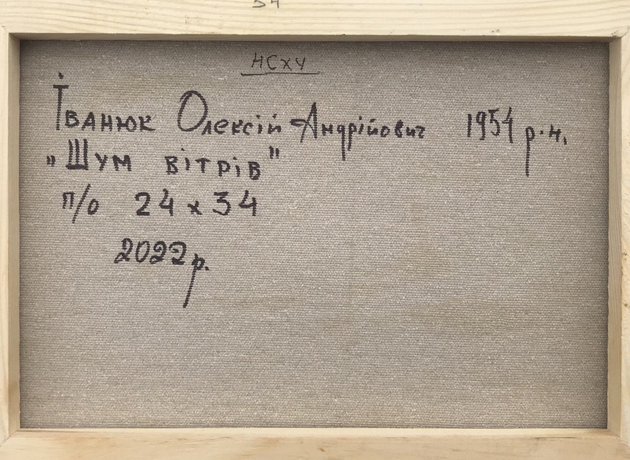 54
НСХУ
Іванюк Олексій Андрійович 1954 р.н.
„Шум вітрів"
п/о 24 х 34
2022р.